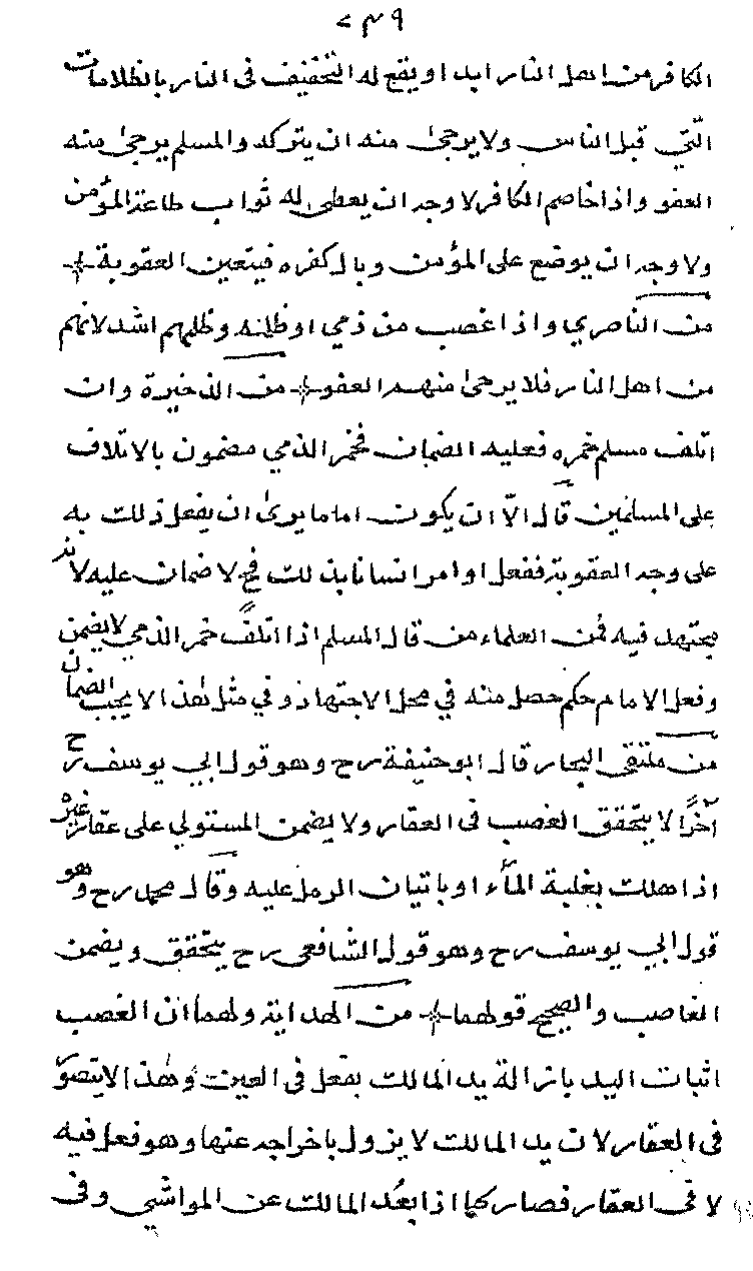 ٢٣٩
الكافر من اهل النار ابدا ويقع له التخفيف فى النار بالظلامات
التّي قبل الناس ولا يرجىٰ منه ان يتركه والمسلم يرجىٰ منه
العفو واذا خاصم الكافر لا وجه ان يعطى له ثواب طاعة المؤمن
ولا وجه ان يوضع على المؤمن وبال كفره فيتعين العقوبة
من الناصري واذا غصب من ذمي او ظلمه وظلمهم اشد لانهم
من اهل النار فلا يرجىٰ منهم العفو من الذخيرة وان
اتلف مسلم خمره فعليه الضمان فخمر الذمي مضمون بالاتلاف
على المسلمين قال الّا ان يكون اماما يرىٰ ان يفعل ذلك به
على وجه العقوبة ففعل او امر انسانا بذلك فح لا ضمان عليه لانه
مجتهد فيه فمن العلماء من قال المسلم اذا اتلف خمر الذمي لا يضمن
وفعل الامام حكم حصل منه في محل الاجتهاد وفي مثل هٰذا لا يجب الضمان
من ملتقى البحار قال ابو حنيفة رح وهو قول ابي يوسف رح
آخرًا لا يتحقق الغصب فى العقار ولا يضمن المستولي على عقار غيره
اذا هلك بغلبة الماء او باتيان الرمل عليه وقال محمد رح وهو
قول ابي يوسف رح وهو قول الشافعى رح يتحقق ويضمن
الغاصب والصحيح قولهما من الهداية ولهما ان الغصب
اثبات اليد بازالة يد المالك بفعل فى العين وهٰذا لا يتصوّر
فى العقار لان يد المالك لا يزول باخراجه عنها وهو فعل فيه
لا فى العقار فصار كما اذا بعُد المالك عن المواشي وفى